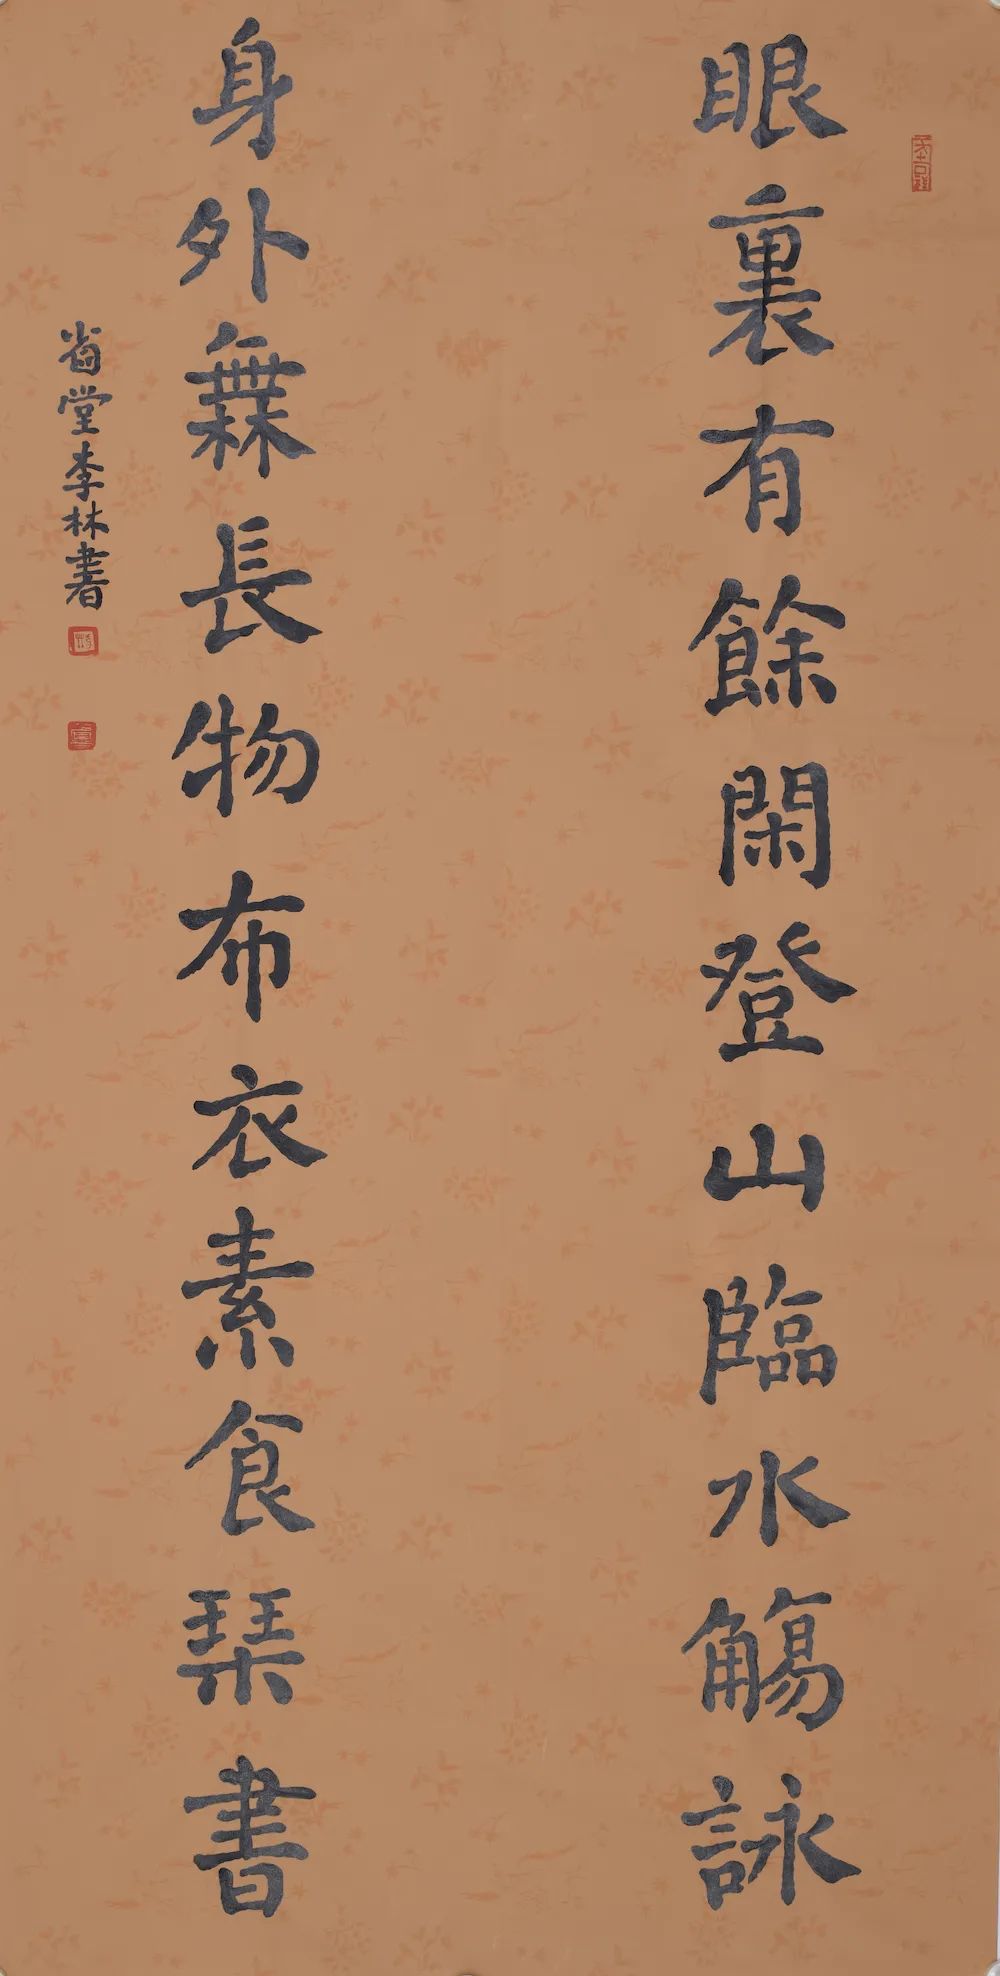 眼裏有餘閑登山臨水觴詠
身外無長物布衣素食琹書
省堂李林書